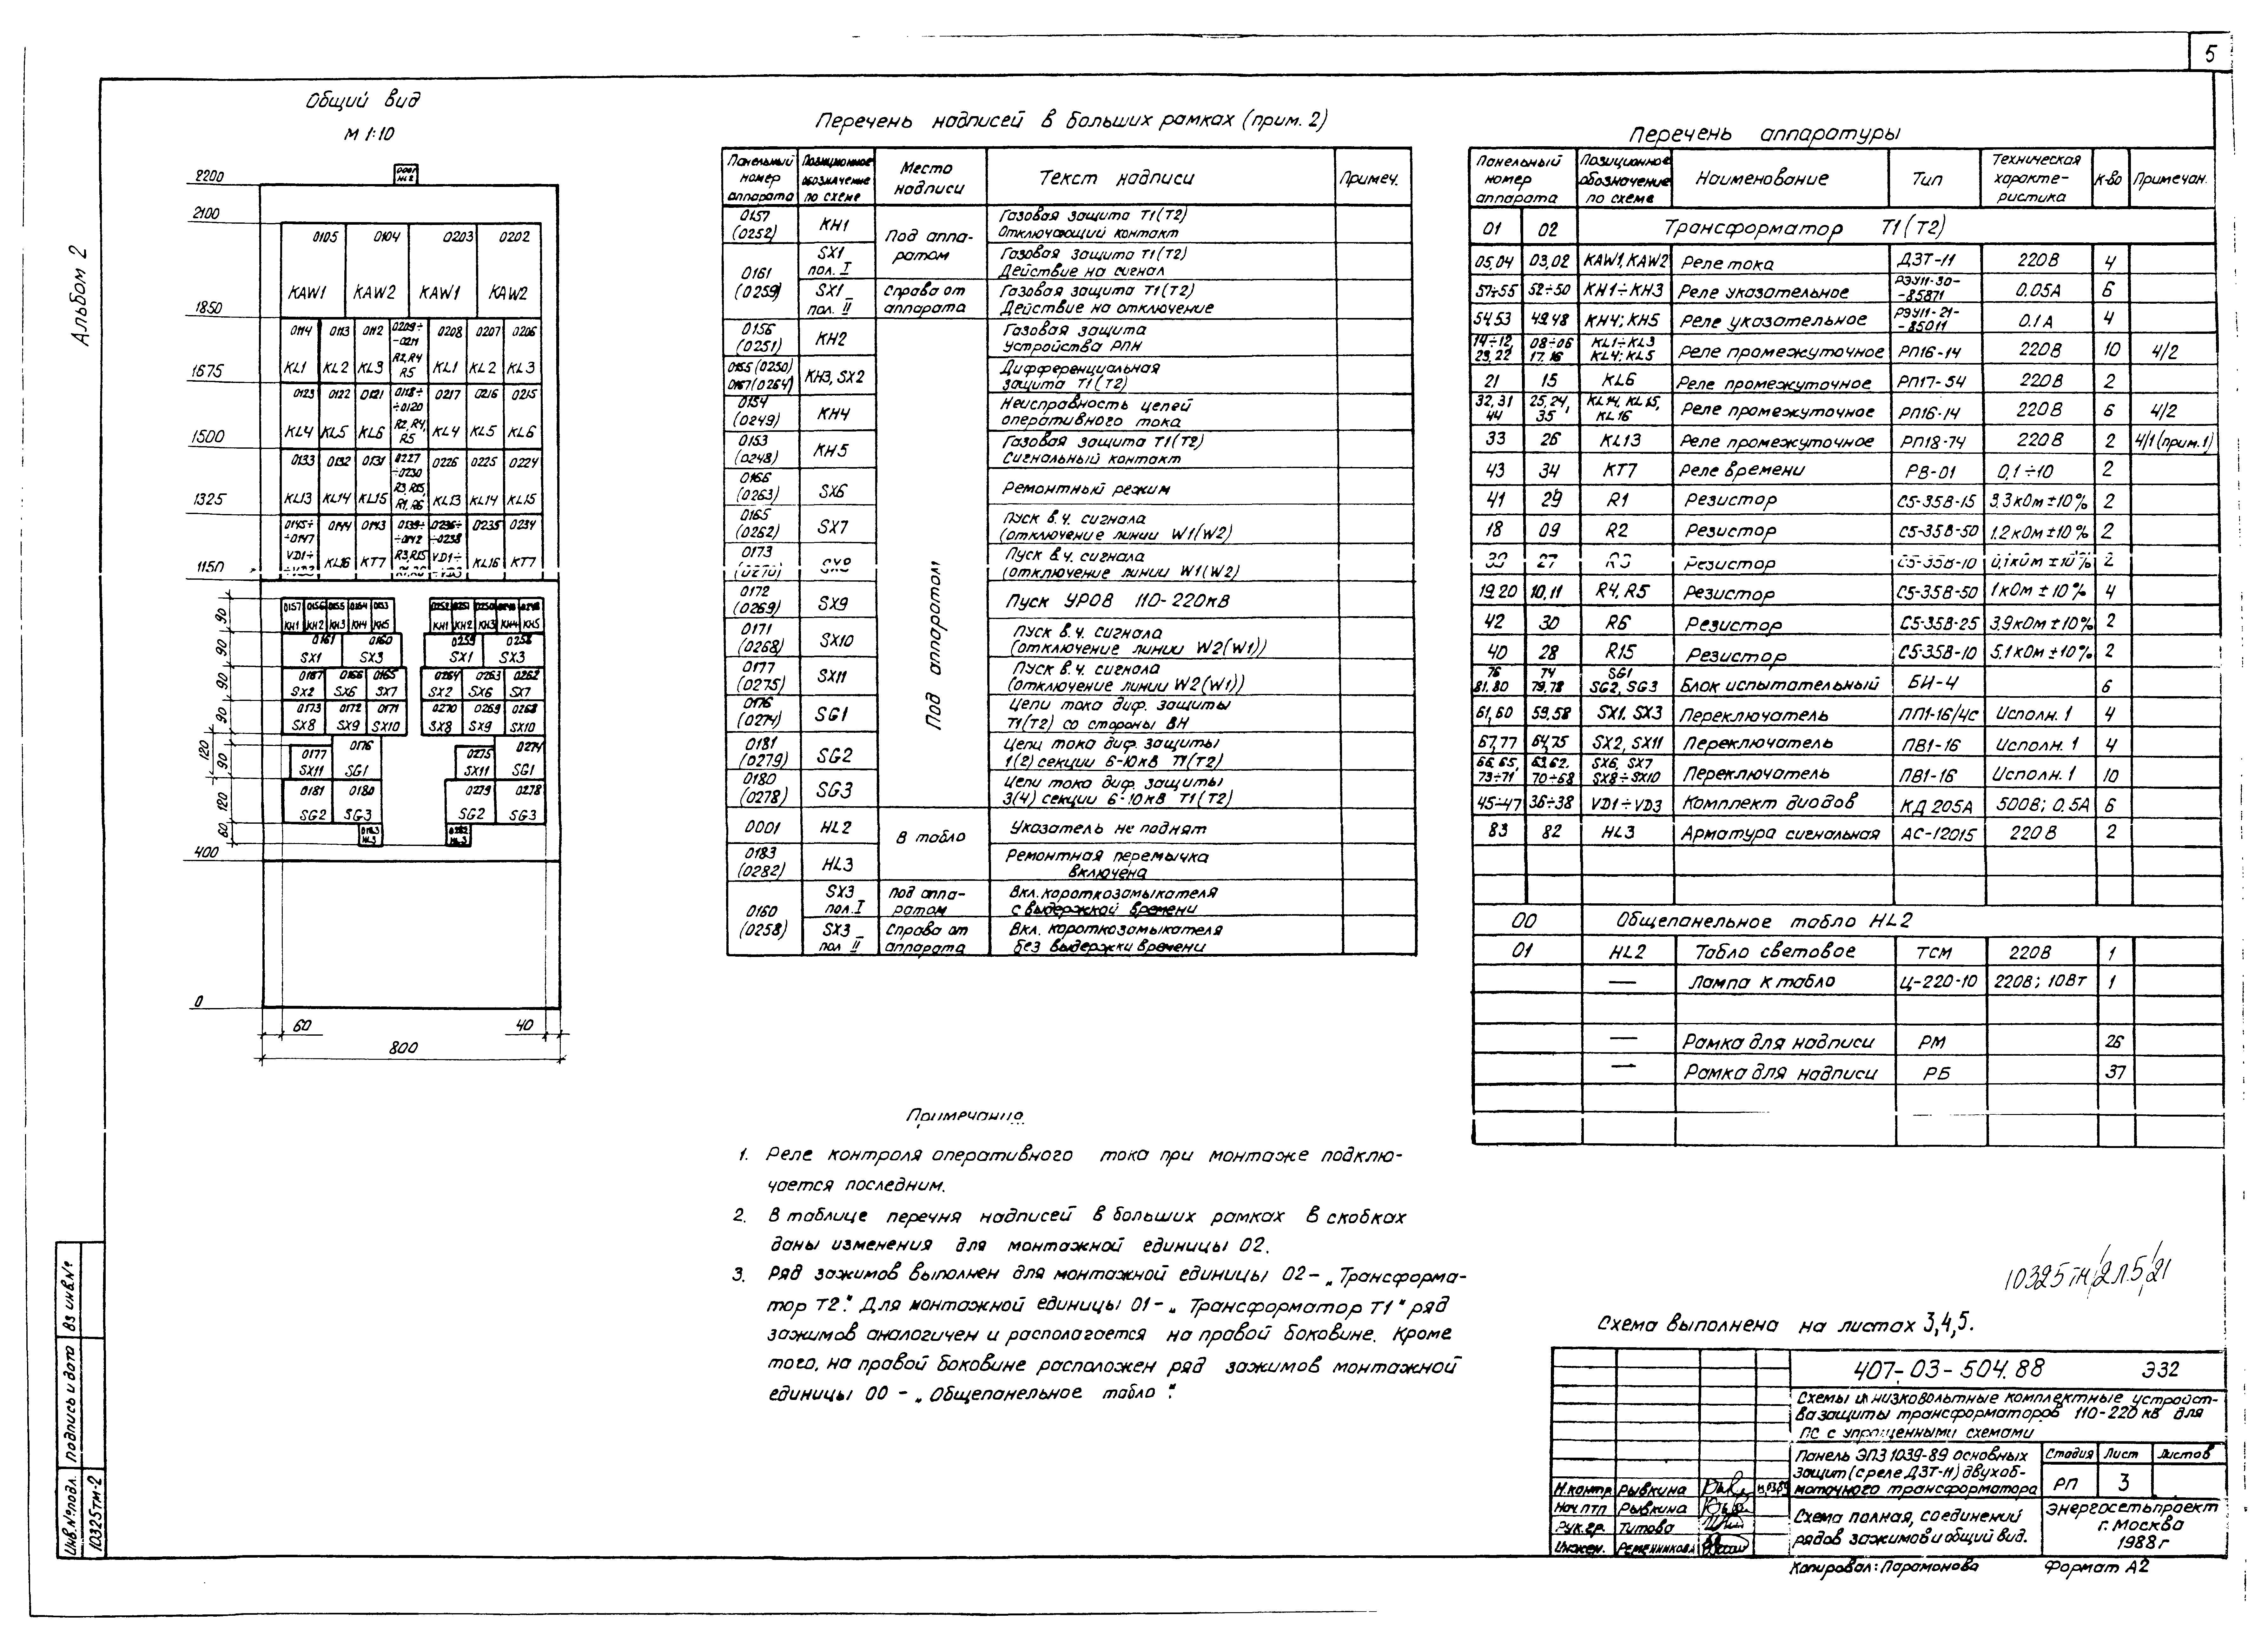 5
Альбом 2
Общий вид
М 1:10
2200
2100
1850
1675
1500
1325
1150
400
0
HL2
0105 0104 0203 0202
KAW1 KAW2 KAW1 KAW2
0114 0113 0112 0209÷ 0208 0207 0206
-0211
KL1 KL2 KL3 R2, R4 R5 KL1 KL2 KL3
0123 0122 0121 0118÷ 0217 0216 0215
÷0120
KL4 KL5 KL6 R2, R4, R5 KL4 KL5 KL6
0133 0132 0131 0227 0226 0225 0224
÷0230
KL13 KL14 KL15 R3, R15, R1, R6 KL13 KL14 KL15
0145÷ 0144 0143 0139÷ 0236÷ 0235 0234
÷0147 ÷0142 ÷0238
VD1÷ KL16 KT7 R3, R15 VD1÷ KL16 KT7
0157 0156 0155 0154 0153 0252 0251 0250 0249 0248
KH1 KH2 KH3 KH4 KH5 KH1 KH2 KH3 KH4 KH5
0161 0160 0259 0258
SX1 SX3 SX1 SX3
0167 0166 0165 0264 0263 0262
SX2 SX6 SX7 SX2 SX6 SX7
0173 0172 0171 0270 0269 0268
SX8 SX9 SX10 SX8 SX9 SX10
0177 0176 0275 0274
SX11 SG1 SX11 SG1
0181 0180 0279 0278
SG2 SG3 SG2 SG3
0183 0282
HL3 HL3
90 90 90 90 120 90 120 60
60 40
800
Перечень надписей в больших рамках (прим. 2)
Панельный номер аппарата Позиционное обозначение по схеме Место надписи Текст надписи Примеч.
0157 (0252) KH1 Под аппаратом Газовая защита Т1(Т2)
Отключающий контакт
0161 (0259) SX1 пол. I Газовая защита Т1(Т2)
Действие на сигнал
SX1 пол. II Справа от аппарата Газовая защита Т1(Т2)
Действие на отключение
0156 (0251) KH2 Под аппаратом Газовая защита
устройства РПН
0155(0250) 0167(0264) KH3, SX2 Дифференциальная
защита Т1(Т2)
0154 (0249) KH4 Неисправность цепей
оперативного тока
0153 (0248) KH5 Газовая защита Т1(Т2)
Сигнальный контакт
0166 (0263) SX6 Ремонтный режим
0165 (0262) SX7 Пуск в.ч. сигнала
(отключение линии W1(W2)
0173 (0270) SX8 Пуск в.ч. сигнала
(отключение линии W1(W2)
0172 (0269) SX9 Пуск УРОВ 110-220кВ
0171 (0268) SX10 Пуск в.ч. сигнала
(отключение линии W2(W1))
0177 (0275) SX11 Пуск в.ч. сигнала
(отключение линии W2(W1))
0176 (0274) SG1 Цепи тока диф. защиты
Т1(Т2) со стороны ВН
0181 (0279) SG2 Цепи тока диф. защиты
1(2) секции 6-10кВ Т1(Т2)
0180 (0278) SG3 Цепи тока диф. защиты
3(4) секции 6-10кВ Т1(Т2)
0001 HL2 В табло Указатель не поднят
0183 (0282) HL3 Ремонтная перемычка
включена
0160 (0258) SX3 пол. I Под аппаратом Вкл. короткозамыкателя
с выдержкой времени
SX3 пол II Справа от аппарата Вкл. короткозамыкателя
без выдержки времени
Перечень аппаратуры
Панельный номер аппарата Позиционное обозначение по схеме Наименование Тип Техническая характеристика К-во Примечан.
01 02 Трансформатор Т1(Т2)
05,04 03,02 KAW1, KAW2 Реле тока ДЗТ-11 220В 4
57÷55 52÷50 KH1÷KH3 Реле указательное РЭУ11-30-85871 0.05А 6
54,53 49,48 KH4; KH5 Реле указательное РЭУ11-21-85011 0.1А 4
14÷12, 23,22 08÷06 17,16 KL1÷KL3 KL4; KL5 Реле промежуточное РП16-14 220В 10 4/2
21 15 KL6 Реле промежуточное РП17-54 220В 2
32,31 44 25,24, 35 KL14, KL15, KL16 Реле промежуточное РП16-14 220В 6 4/2
33 26 KL13 Реле промежуточное РП18-74 220В 2 4/1(прим.1)
43 34 KT7 Реле времени РВ-01 0,1÷10 2
41 29 R1 Резистор С5-35В-15 3.3кОм±10% 2
18 09 R2 Резистор С5-35В-50 1.2кОм±10% 2
39 27 R3 Резистор С5-35В-10 0,1кОм±10% 2
19,20 10,11 R4, R5 Резистор С5-35В-50 1кОм±10% 4
42 30 R6 Резистор С5-35В-25 3.9кОм±10% 2
40 28 R15 Резистор С5-35В-10 5.1кОм±10% 2
76 81,80 74 79,78 SG1 SG2, SG3 Блок испытательный БИ-4 6
61,60 59,58 SX1, SX3 Переключатель ПП1-16/4с Исполн. 1 4
67,77 64,75 SX2, SX11 Переключатель ПВ1-16 Исполн. 1 4
66,65, 73÷71 63,62, 70÷68 SX6, SX7 SX8÷SX10 Переключатель ПВ1-16 Исполн. 1 10
45÷47 36÷38 VD1÷VD3 Комплект диодов КД 205А 500В; 0.5А 6
83 82 HL3 Арматура сигнальная АС-12015 220В 2
00 Общепанельное табло HL2
01 HL2 Табло световое ТСМ 220В 1
— Лампа к табло Ц-220-10 220В; 10Вт 1
— Рамка для надписи РМ 26
— Рамка для надписи РБ 37
Примечания
1. Реле контроля оперативного тока при монтаже подклю-
чается последним.
2. В таблице перечня надписей в больших рамках в скобках
даны изменения для монтажной единицы 02.
3. Ряд зажимов выполнен для монтажной единицы 02 – „Трансформа-
тор Т2". Для монтажной единицы 01 – „Трансформатор Т1" ряд
зажимов аналогичен и располагается на правой боковине. Кроме
того, на правой боковине расположен ряд зажимов монтажной
единицы 00 – „Общепанельное табло".
10325тм/2 л.5/21
Схема выполнена на листах 3,4,5.
407-03-504.88 ЭЗ2
Схемы и низковольтные комплектные устройст-
ва защиты трансформаторов 110-220 кВ для
ПС с упрощенными схемами
Панель ЭПЗ 1039-89 основных
защит (с реле ДЗТ-11) двухоб-
моточного трансформатора
Стадия Лист Листов
РП 3
Н.контр Рывкина
Нач.птп Рывкина
Рук.гр. Титова
Инжен. Ременникова
Схема полная, соединений
рядов зажимов и общий вид.
Энергосетьпроект
г. Москва
1988г
Копировал: Парамонова Формат А2
Инв.№подл. Подпись и дата Вз инв.№
10325тм-2